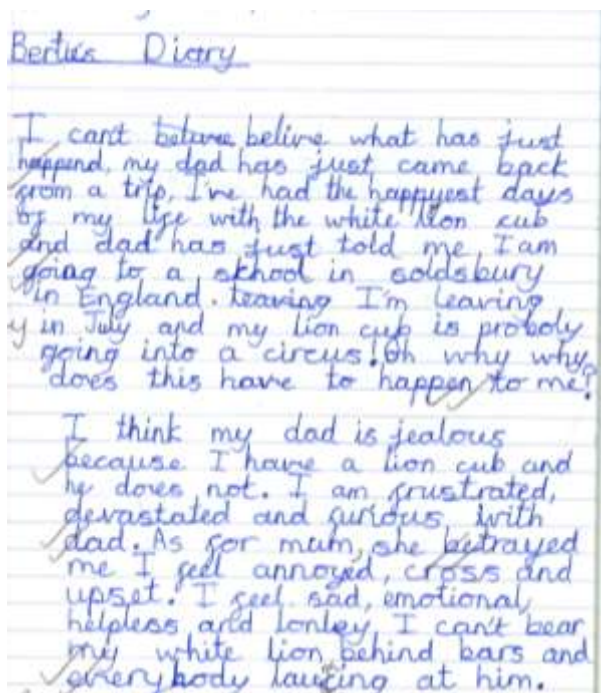 Bertie's Diary
I can't beleive belive what has just
happend, my dad has just came back
from a trip, I've had the happyest days
of my life with the white lion cub
and dad has just told me I am
going to a skhool in soldsbury
in England. leaving I'm leaving
y in July and my lion cub is proboly
going into a circus! Oh why why
does this have to happen to me?
I think my dad is jealous
because I have a lion cub and
he does not. I am frustrated,
devastated and furious with
dad. As for mum, she betrayed
me I feel annoyed, cross and
upset. I feel sad, emotional,
helpless and lonley I can't bear
my white lion behind bars and
everybody lauging at him.